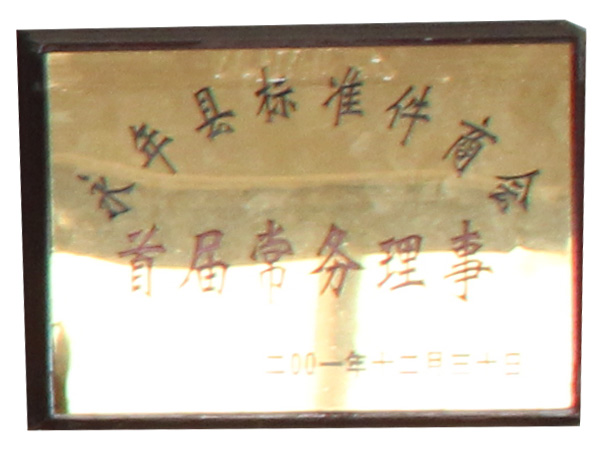 永年县标准件商会
首届常务理事
二00一年十二月三十日